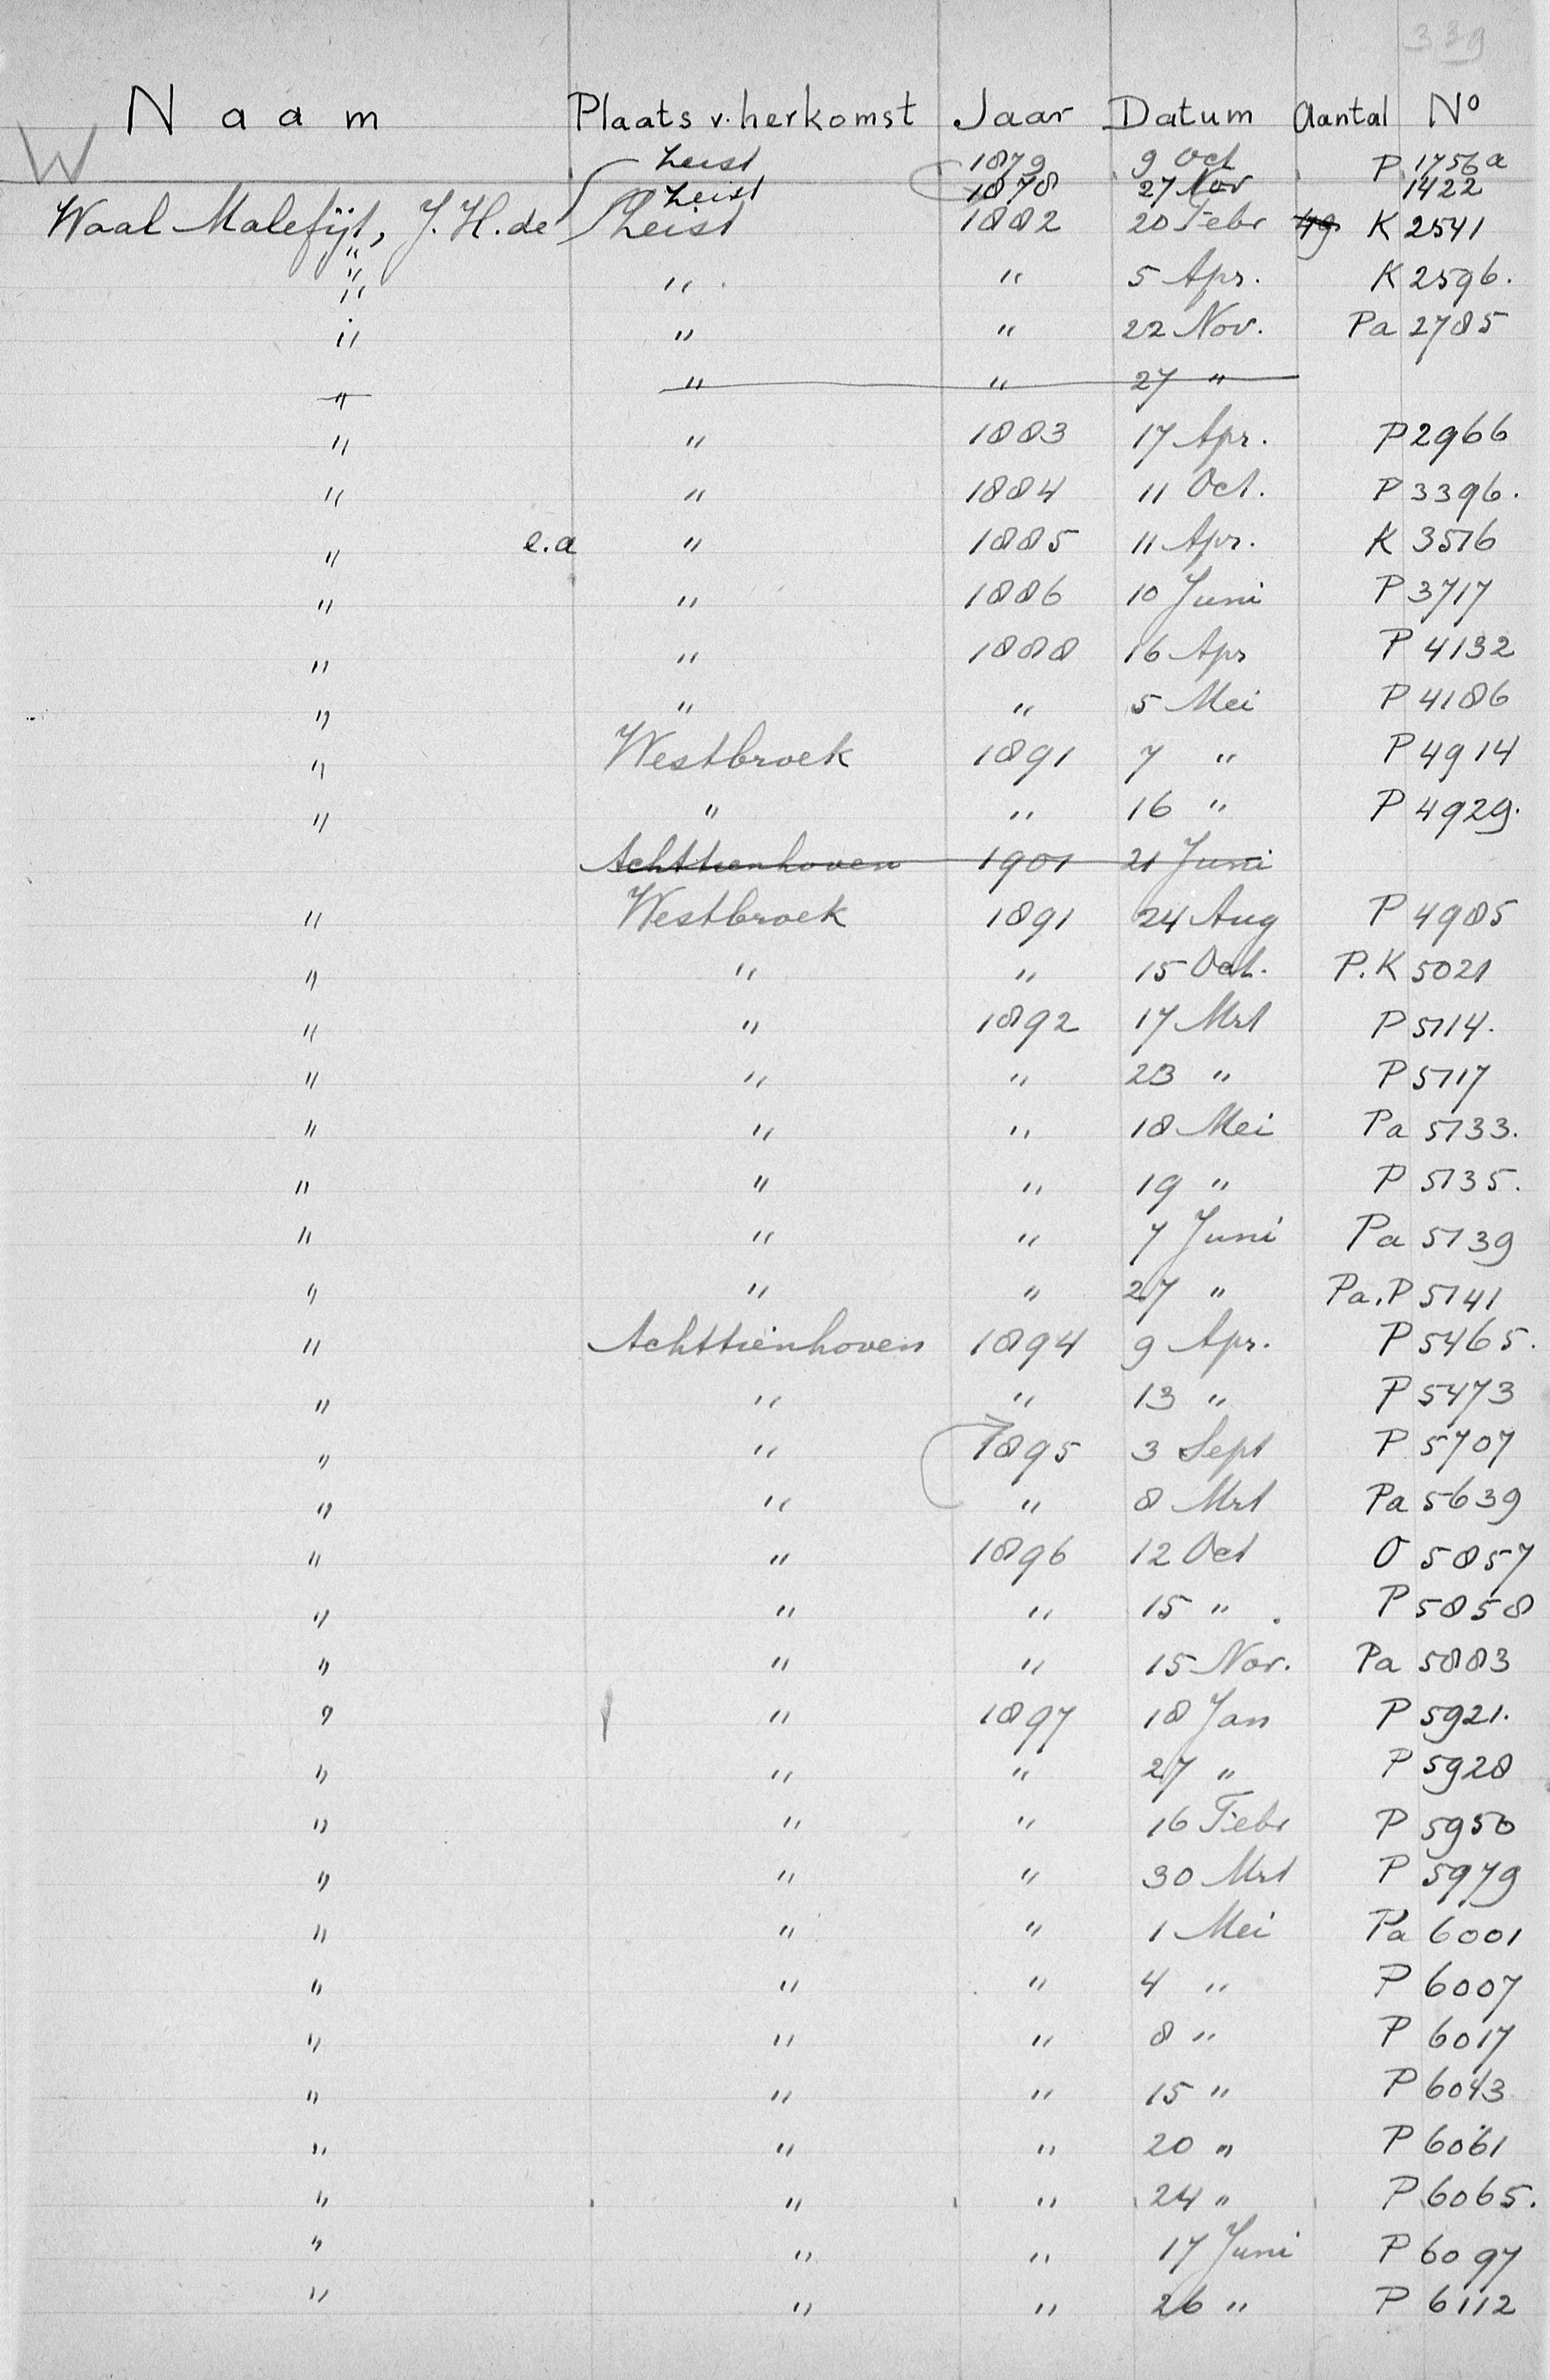 339
Naam Plaats v. herkomst Jaar Datum Aantal No
W
Zeist 1879 9 Oct P 1756a
Zeist 1878 27 Nov 1422
Waal Malefijt, J. H. de Zeist 1882 20 Febr 49 K 2541
" " " 5 Apr. K 2596.
" " " 22 Nov. Pa 2785
" " " 27 "
" " 1883 17 Apr. P 2966
" " 1884 11 Oct. P 3396.
" e.a " 1885 11 Apr. K 3576
" " 1886 10 Juni P 3717
" " 1888 16 Apr P 4132
" " " 5 Mei P 4186
" Westbroek 1891 7 " P 4914
" " " 16 " P 4929.
Achttienhoven 1901 21 Juni
" Westbroek 1891 24 Aug P 4985
" " " 15 Oct. P.K 5021
" " 1892 17 Mrt P 5114.
" " " 23 " P 5117
" " " 18 Mei Pa 5133.
" " " 19 " P 5135.
" " " 7 Juni Pa 5139
" " " 27 " Pa.P 5141
" Achttienhoven 1894 9 Apr. P 5465.
" " " 13 " P 5473
" " 1895 3 Sept P 5707
" " " 8 Mrt Pa 5639
" " 1896 12 Oct O 5857
" " " 15 " P 5858
" " " 15 Nov. Pa 5883
" " 1897 18 Jan P 5921.
" " " 27 " P 5928
" " " 16 Febr P 5950
" " " 30 Mrt P 5979
" " " 1 Mei Pa 6001
" " " 4 " P 6007
" " " 8 " P 6017
" " " 15 " P 6043
" " " 20 " P 6061
" " " 24 " P 6065.
" " " 17 Juni P 6097
" " " 26 " P 6112